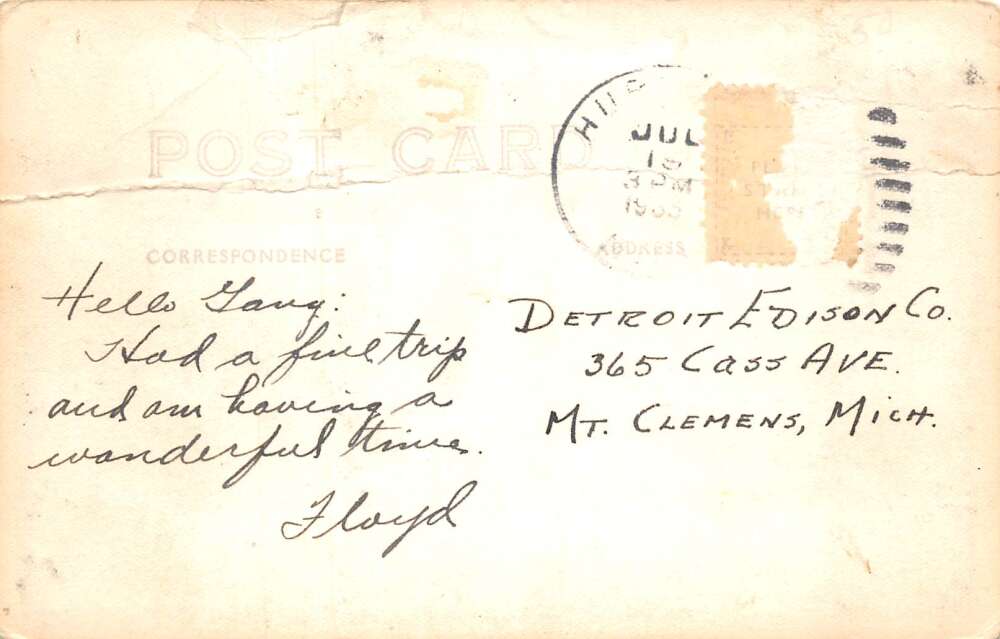 POST CARD
JUL
3 PM
CORRESPONDENCE
ADDRESS
Hello Gang:
Had a fine trip
and am having a
wonderful time.
Floyd
DETROIT EDISON CO.
365 CASS AVE.
MT. CLEMENS, MICH.